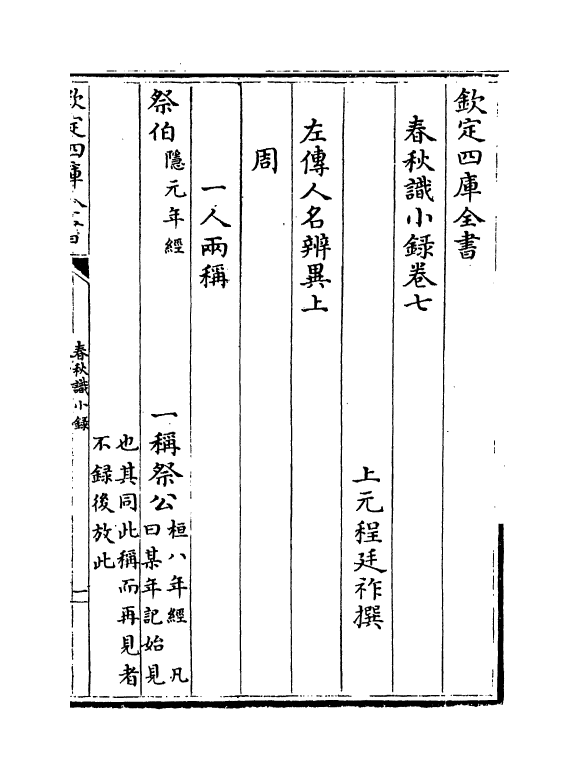 欽定四庫全書
春秋識小録卷七
上元程廷祚撰
左傳人名辨異上
周
一人兩稱
祭伯隱元年經
一稱祭公桓八年經 凡
曰某年記始見
也其同此稱而再見者
不録後放此
欽定四庫全書
春秋識小録
一